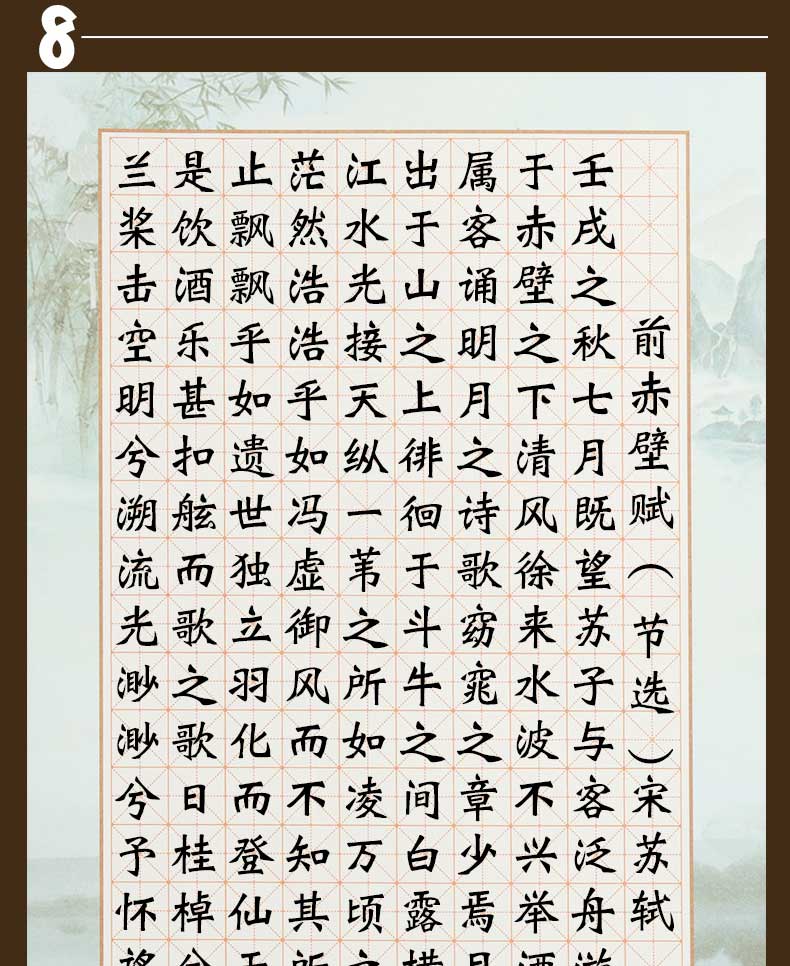 8
前赤壁赋（节选）宋苏轼
壬戌之秋七月既望苏子与客泛舟游
于赤壁之下清风徐来水波不兴举酒
属客诵明月之诗歌窈窕之章少焉月
出于山之上徘徊于斗牛之间白露横
江水光接天纵一苇之所如凌万顷之
茫然浩浩乎如冯虚御风而不知其所
止飘飘乎如遗世独立羽化而登仙于
是饮酒乐甚扣舷而歌之歌日桂棹兮
兰桨击空明兮溯流光渺渺兮予怀望